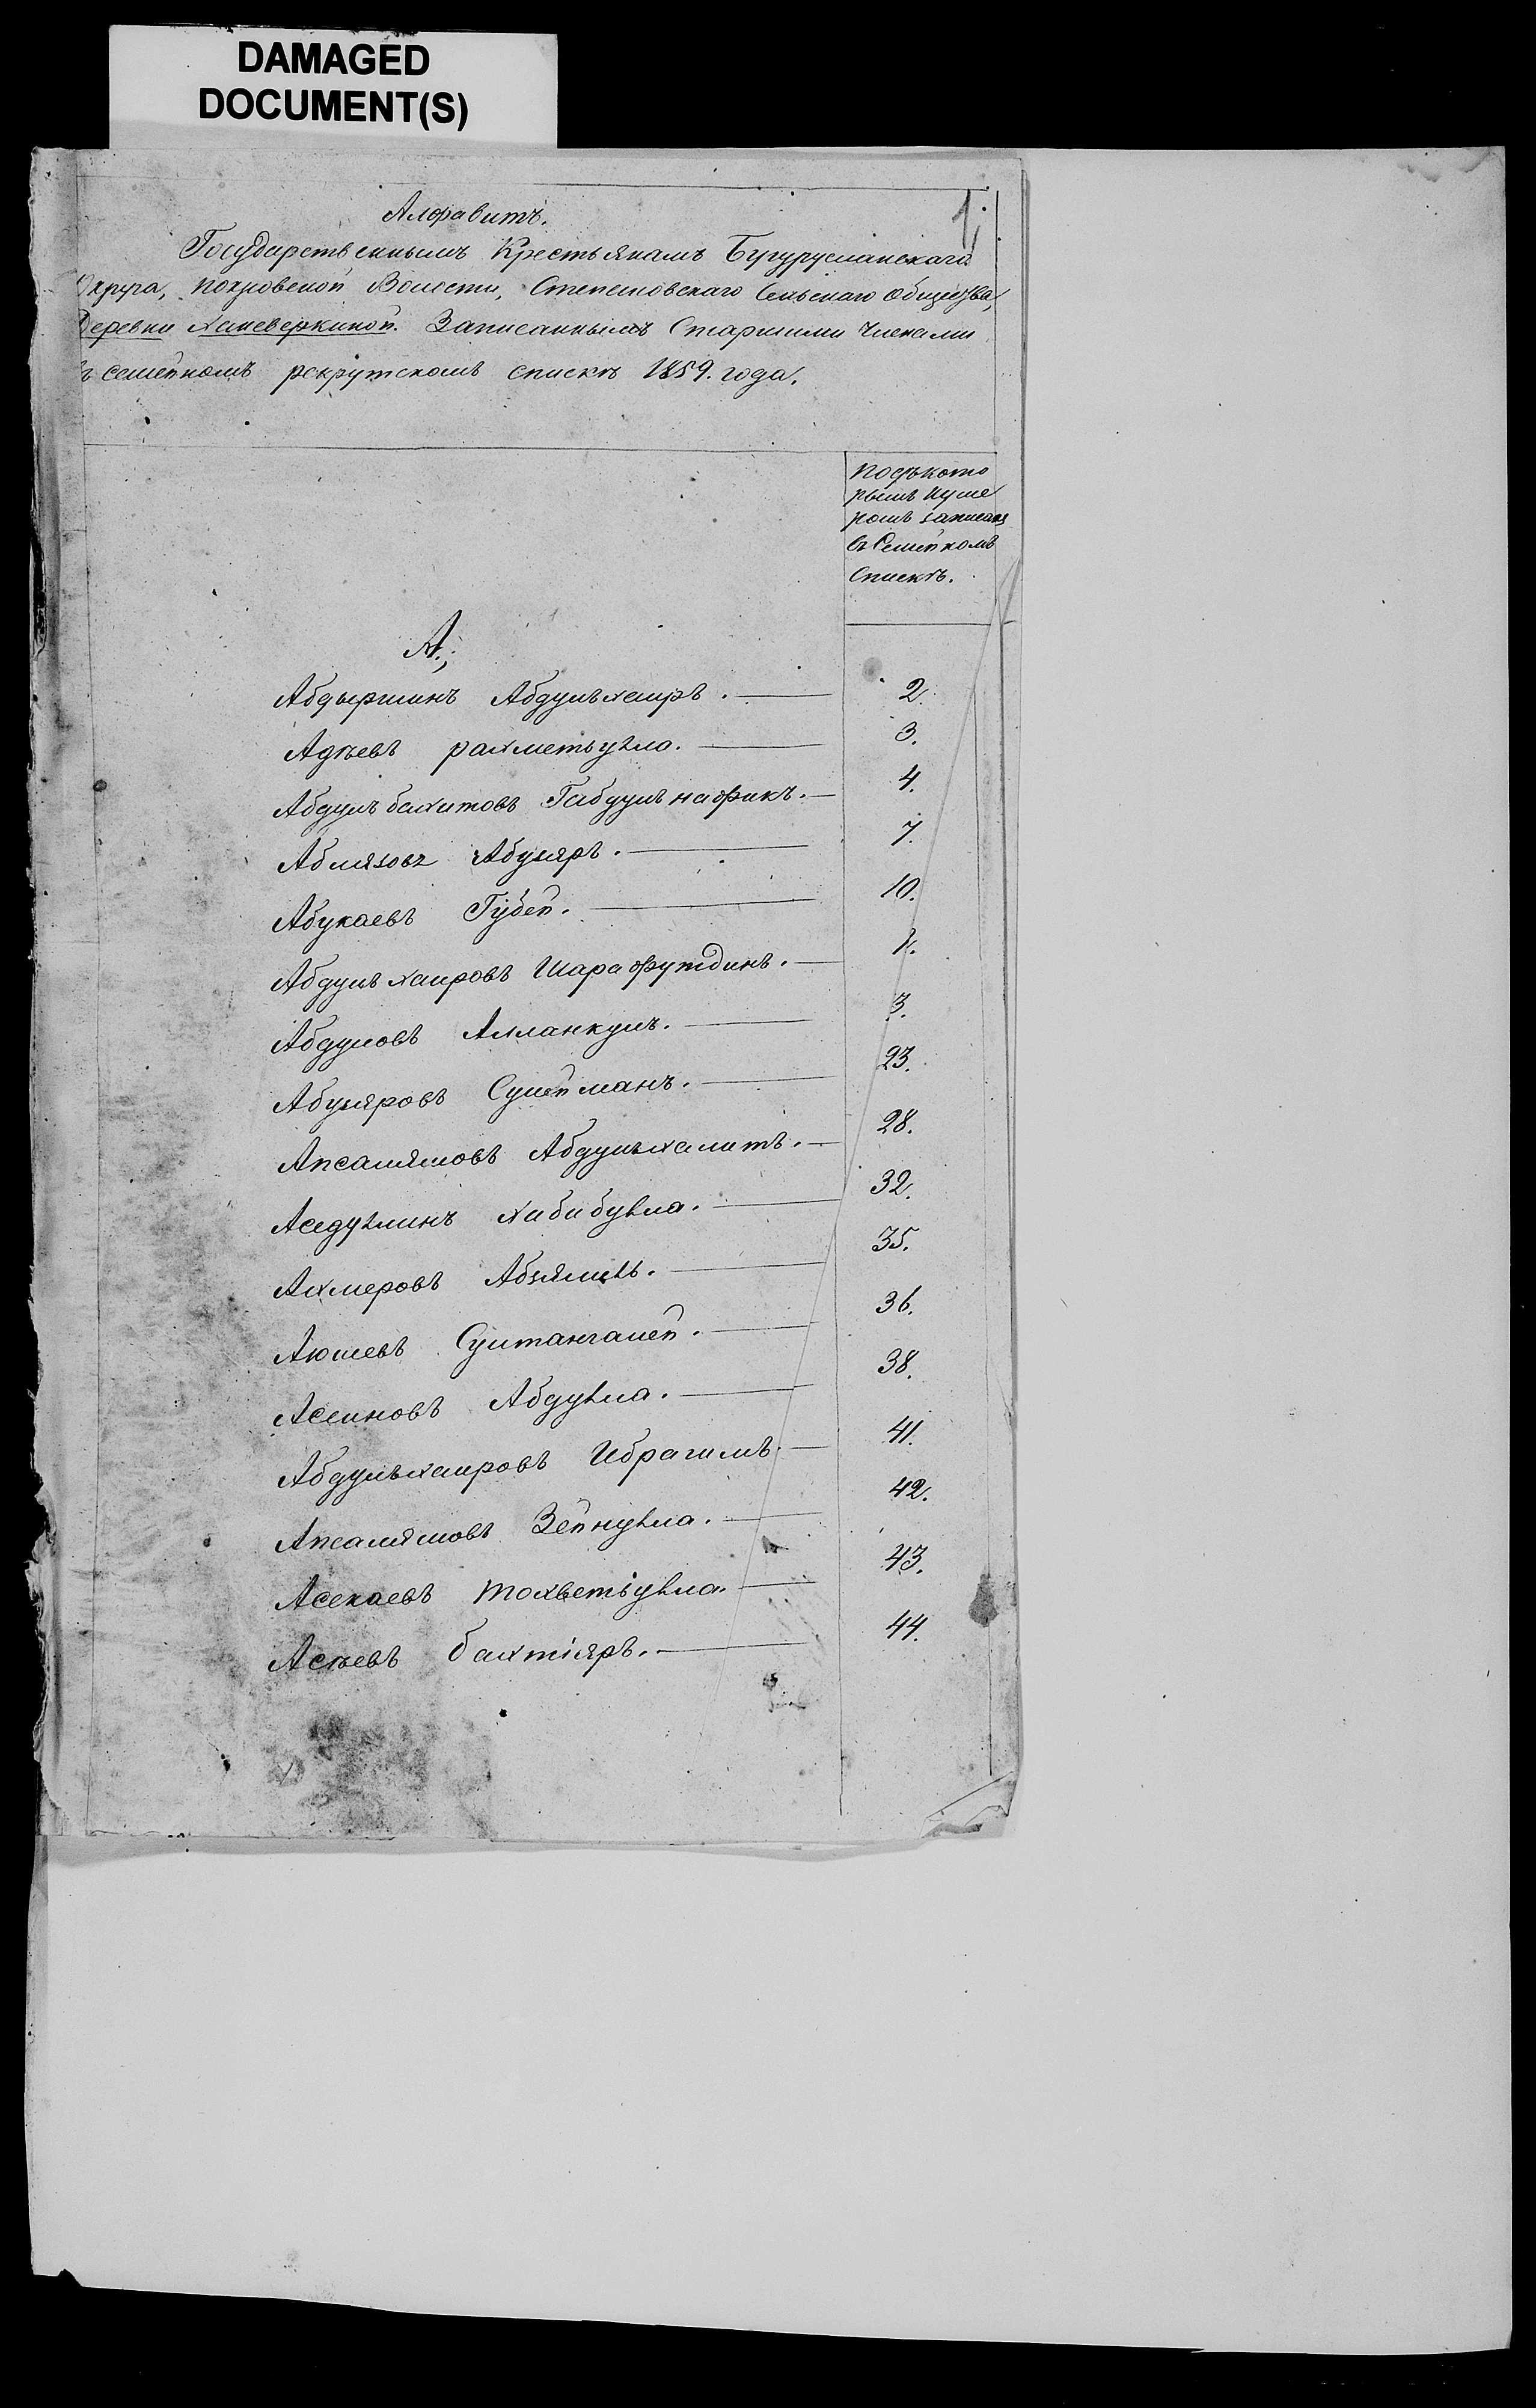 DAMAGED
DOCUMENT(S)
1.
Алфавитъ.
Государственнымъ Крестьянамъ Бугурусланскаго
Округа, Покровской Волости, Степановскаго Сельскаго общества,
Деревни Ханеверкиной. Записаннымъ Старшими Членами
въ семейномъ рекрутскомъ спискѣ 1859. года.
Подъ кото
рымъ нуме
ромъ записанъ
въ Семейномъ
Спискѣ.
А.
Абдыршинъ Абдулъхаиръ. 2.
Адѣевъ рахметьулла. 3.
Абдулъбахитовъ Габдулънафикъ. 4.
Аблязовъ Абуляръ. 7.
Абукаевъ Губей. 10.
Абдулъхаировъ Шарафутдинъ.
Абдуловъ Алланкулъ.
Абуляровъ Сулейманъ. 23.
Апсалямовъ Абдулъхалитъ. 28.
Аседуллинъ хабибулла. 32.
Ахмеровъ Абзялилъ. 35.
Аюшевъ Султангалей. 36.
Асеиновъ Абдулла. 38.
Абдулъхаировъ Ибрагимъ. 41.
Апсалямовъ Зейнулла. 42.
Асекаевъ тохветьулла. 43.
Асѣевъ бахтіяръ. 44.